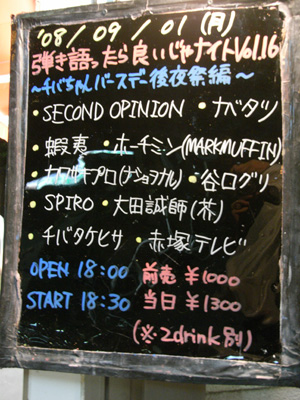 '08/09/01(月)
弾き語ったら良いじゃナイトVol.16
〜チバちゃんバースデー後夜祭編〜
・SECOND OPINION ・ナベタツ
・蝦夷 ・ホーチミン(MARKMUFFIN)
・谷口グリ
・SPIRO ・大田誠師(芥)
・チバタケヒサ ・赤塚テレビ
OPEN 18:00 前売 ¥1000
START 18:30 当日 ¥1300
(※2drink別)